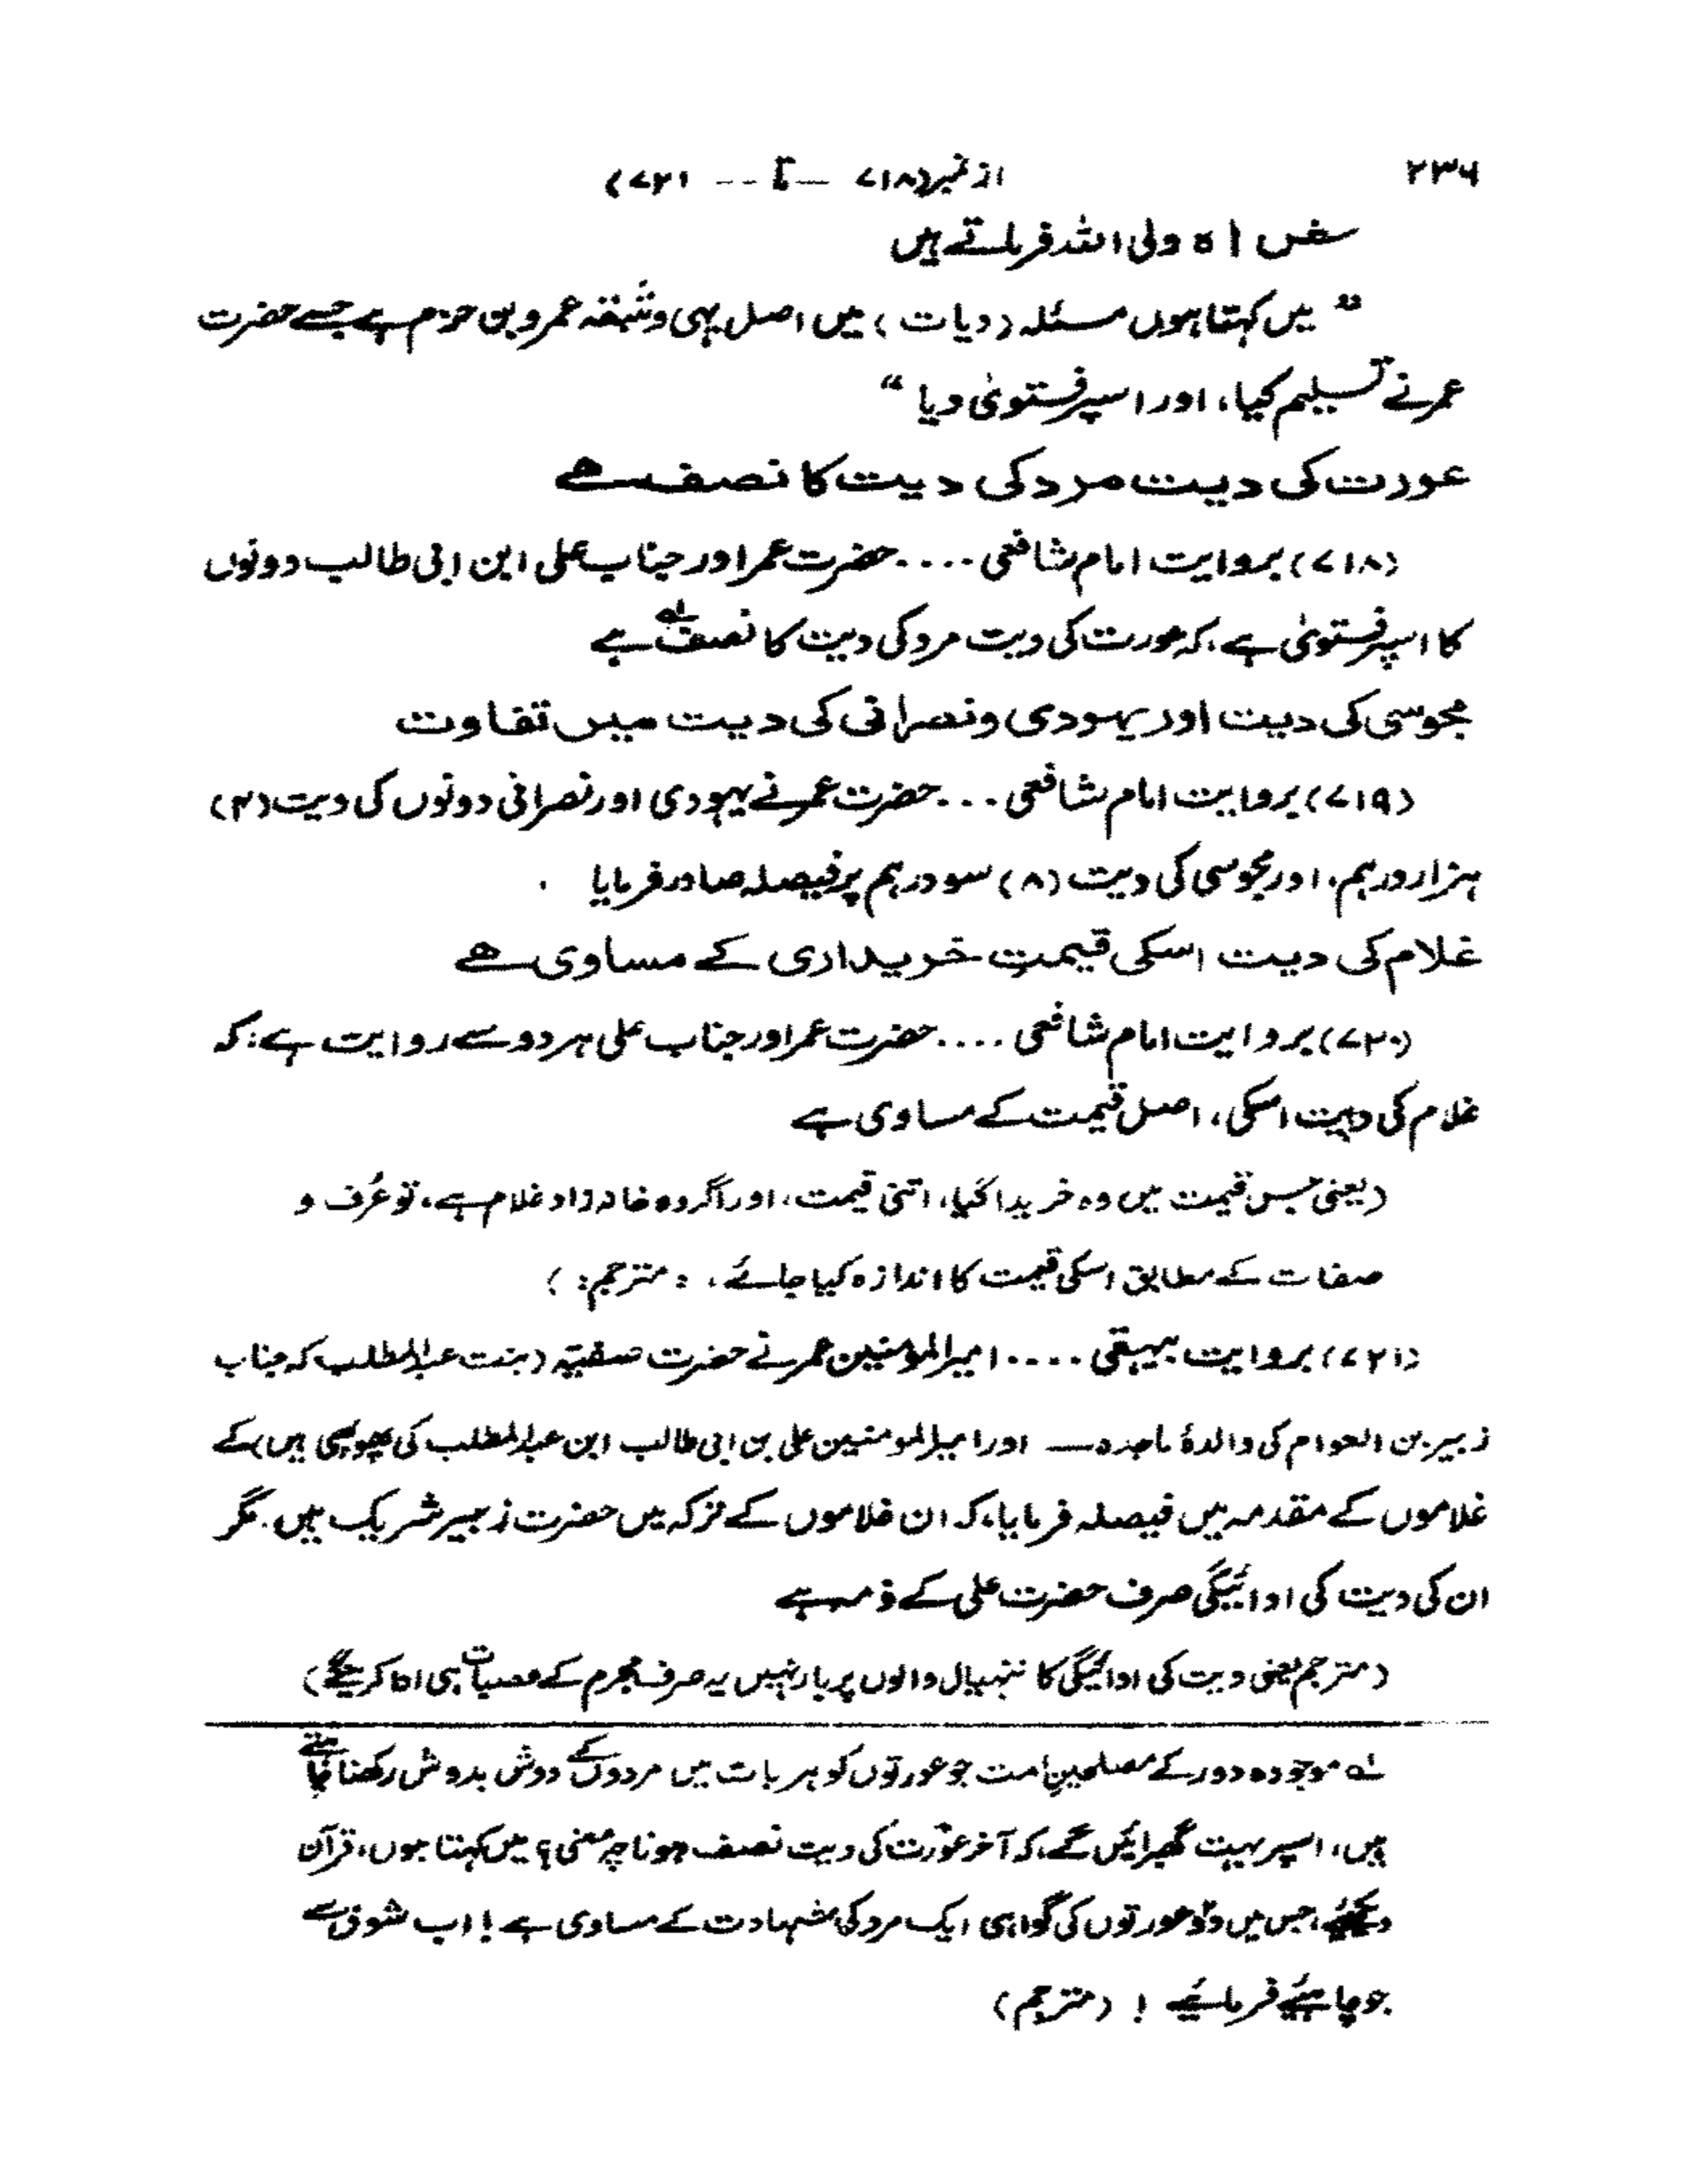 ۲۳۶
از نمبر (۷۱۸ — تا -- ۷۲۱)
شاہ ولی اللہ فرماتے ہیں
" میں کہتا ہوں مسئلہ (دیات) میں اصل یہی وثیقہ عمرو بن حزم ہے جسے حضرت
عمر نے تسلیم کیا، اور اسپر فتویٰ دیا "
عورت کی دیت مرد کی دیت کا نصف ہے
(۷۱۸) بروایت امام شافعی .... حضرت عمر اور جناب علی ابن ابی طالب دونوں
کا اسپر فتویٰ ہے، کہ عورت کی دیت مرد کی دیت کا نصف ہے ؎۱
مجوسی کی دیت اور یہودی و نصرانی کی دیت میں تفاوت
(۷۱۹) بروایت امام شافعی ... حضرت عمر نے یہودی اور نصرانی دونوں کی دیت (۴)
ہزار درہم، اور مجوسی کی دیت (۸) سو درہم پر فیصلہ صادر فرمایا .
غلام کی دیت اسکی قیمتِ خریداری کے مساوی ہے
(۷۲۰) بروایت امام شافعی .... حضرت عمر اور جناب علی ہر دو سے روایت ہے: کہ
غلام کی دیت اسکی، اصل قیمت کے مساوی ہے
(یعنی جس قیمت میں وہ خریدا گیا، اتنی قیمت، اور اگر وہ خانہ زاد غلام ہے، تو عُرف و
صفات کے مطابق اسکی قیمت کا اندازہ کیا جائے، : مترجم: )
(۷۲۱) بروایت بیہقی .... امیر المؤمنین عمر نے حضرت صفیّہ (بنت عبدالمطلب کہ جناب
زبیر بن العوام کی والدۂ ماجدہ — اور امیر المومنین علی بن ابی طالب ابن عبدالمطلب کی پھوپھی ہیں) کے
غلاموں کے مقدمہ میں فیصلہ فرمایا، کہ ان غلاموں کے ترکہ میں حضرت زبیر شریک ہیں. مگر
ان کی دیت کی ادائیگی صرف حضرت علی کے ذمہ ہے
(مترجم یعنی دیت کی ادائیگی کا ننہیال والوں پر بار نہیں یہ صرف مجرم کے عصبات ہی ادا کرینگے)
؎۱ موجودہ دور کے مصلحینِ امت جو عورتوں کو ہر بات میں مردوں کے دوش بدوش رکھنا چاہتے
ہیں، اسپر بہت گھبرائیں گے، کہ آخر عورت کی دیت نصف ہونا چہ معنی؟ میں کہتا ہوں، قرآن
دیکھئے، جس میں دو عورتوں کی گواہی ایک مرد کی شہادت کے مساوی ہے! اب شوق سے
جو چاہیئے فرمایئے ! (مترجم)